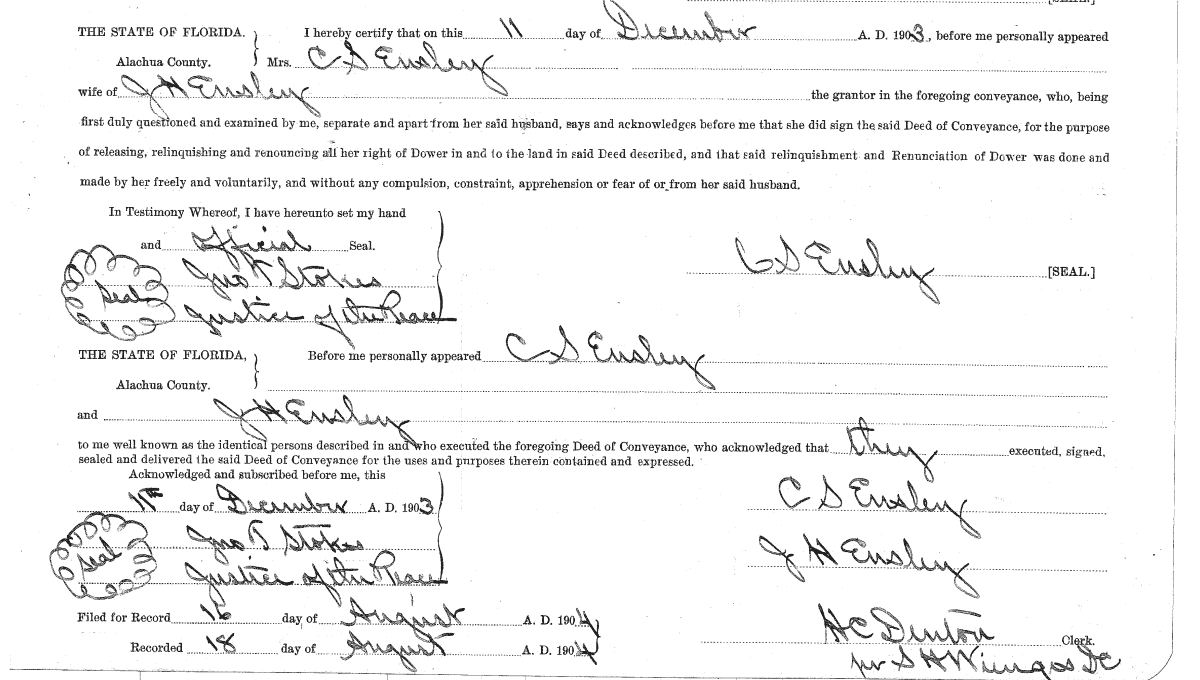 [SEAL.]
THE STATE OF FLORIDA. I hereby certify that on this 11 day of December A. D. 1903, before me personally appeared
Alachua County. Mrs. C S Ensley
wife of J H Ensley the grantor in the foregoing conveyance, who, being
first duly questioned and examined by me, separate and apart from her said husband, says and acknowledges before me that she did sign the said Deed of Conveyance, for the purpose
of releasing, relinquishing and renouncing all her right of Dower in and to the land in said Deed described, and that said relinquishment and Renunciation of Dower was done and
made by her freely and voluntarily, and without any compulsion, constraint, apprehension or fear of or from her said husband.
In Testimony Whereof, I have hereunto set my hand
and official Seal.
C S Ensley [SEAL.]
Seal Jno T Stokes
Justice of the Peace
THE STATE OF FLORIDA, Before me personally appeared C S Ensley
Alachua County.
and J H Ensley
to me well known as the identical persons described in and who executed the foregoing Deed of Conveyance, who acknowledged that they executed, signed,
sealed and delivered the said Deed of Conveyance for the uses and purposes therein contained and expressed.
Acknowledged and subscribed before me, this
11th day of December A. D. 1903 C S Ensley
Seal Jno T Stokes
J H Ensley
Justice of the Peace
Filed for Record 16 day of August A. D. 1904
H C Denton Clerk.
Recorded 18 day of August A. D. 1904
per S H Wienges DC